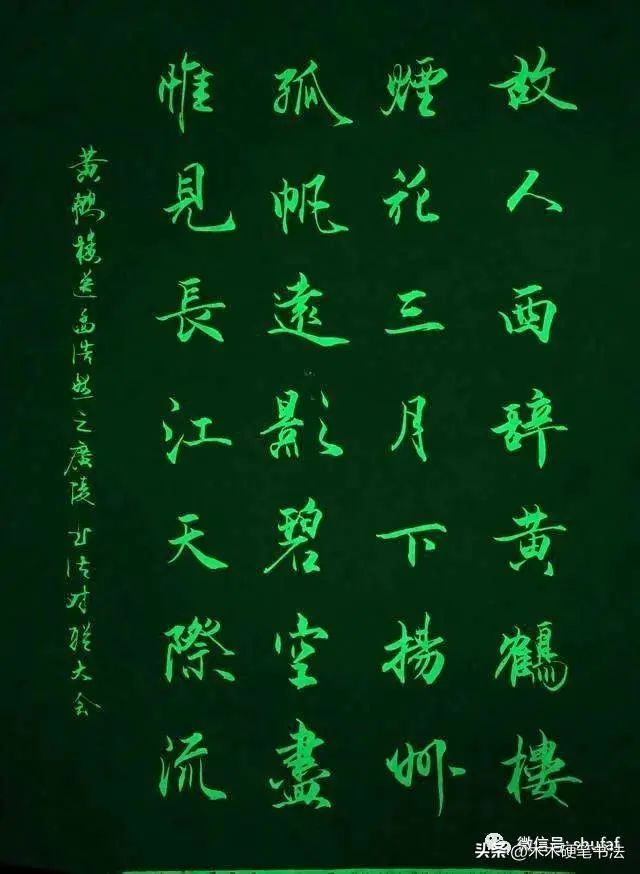 故人西辞黄鶴樓
煙花三月下揚州
孤帆遠影碧空盡
惟見長江天際流
黄鶴楼送孟浩然之廣陵 书法对联大会
微信号: shufaf
头条 @木木硬笔书法